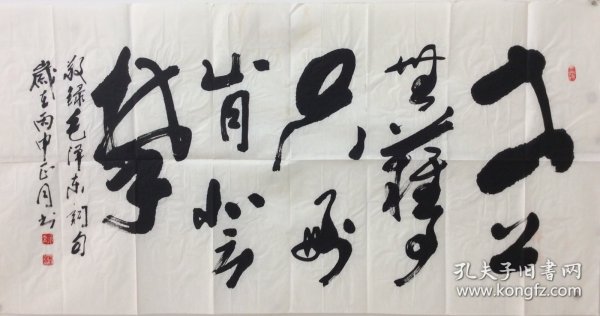 世上
無難事
只要
肯登
攀
敬録毛泽东詞句
歲在丙申正月书
孔夫子旧书网
www.kongfz.com